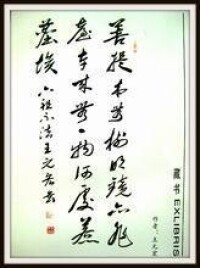 菩提本無樹明鏡亦非
臺本來無一物何處惹
塵埃
六祖示法王元
藏书 EXLIBRIS
作者:王元